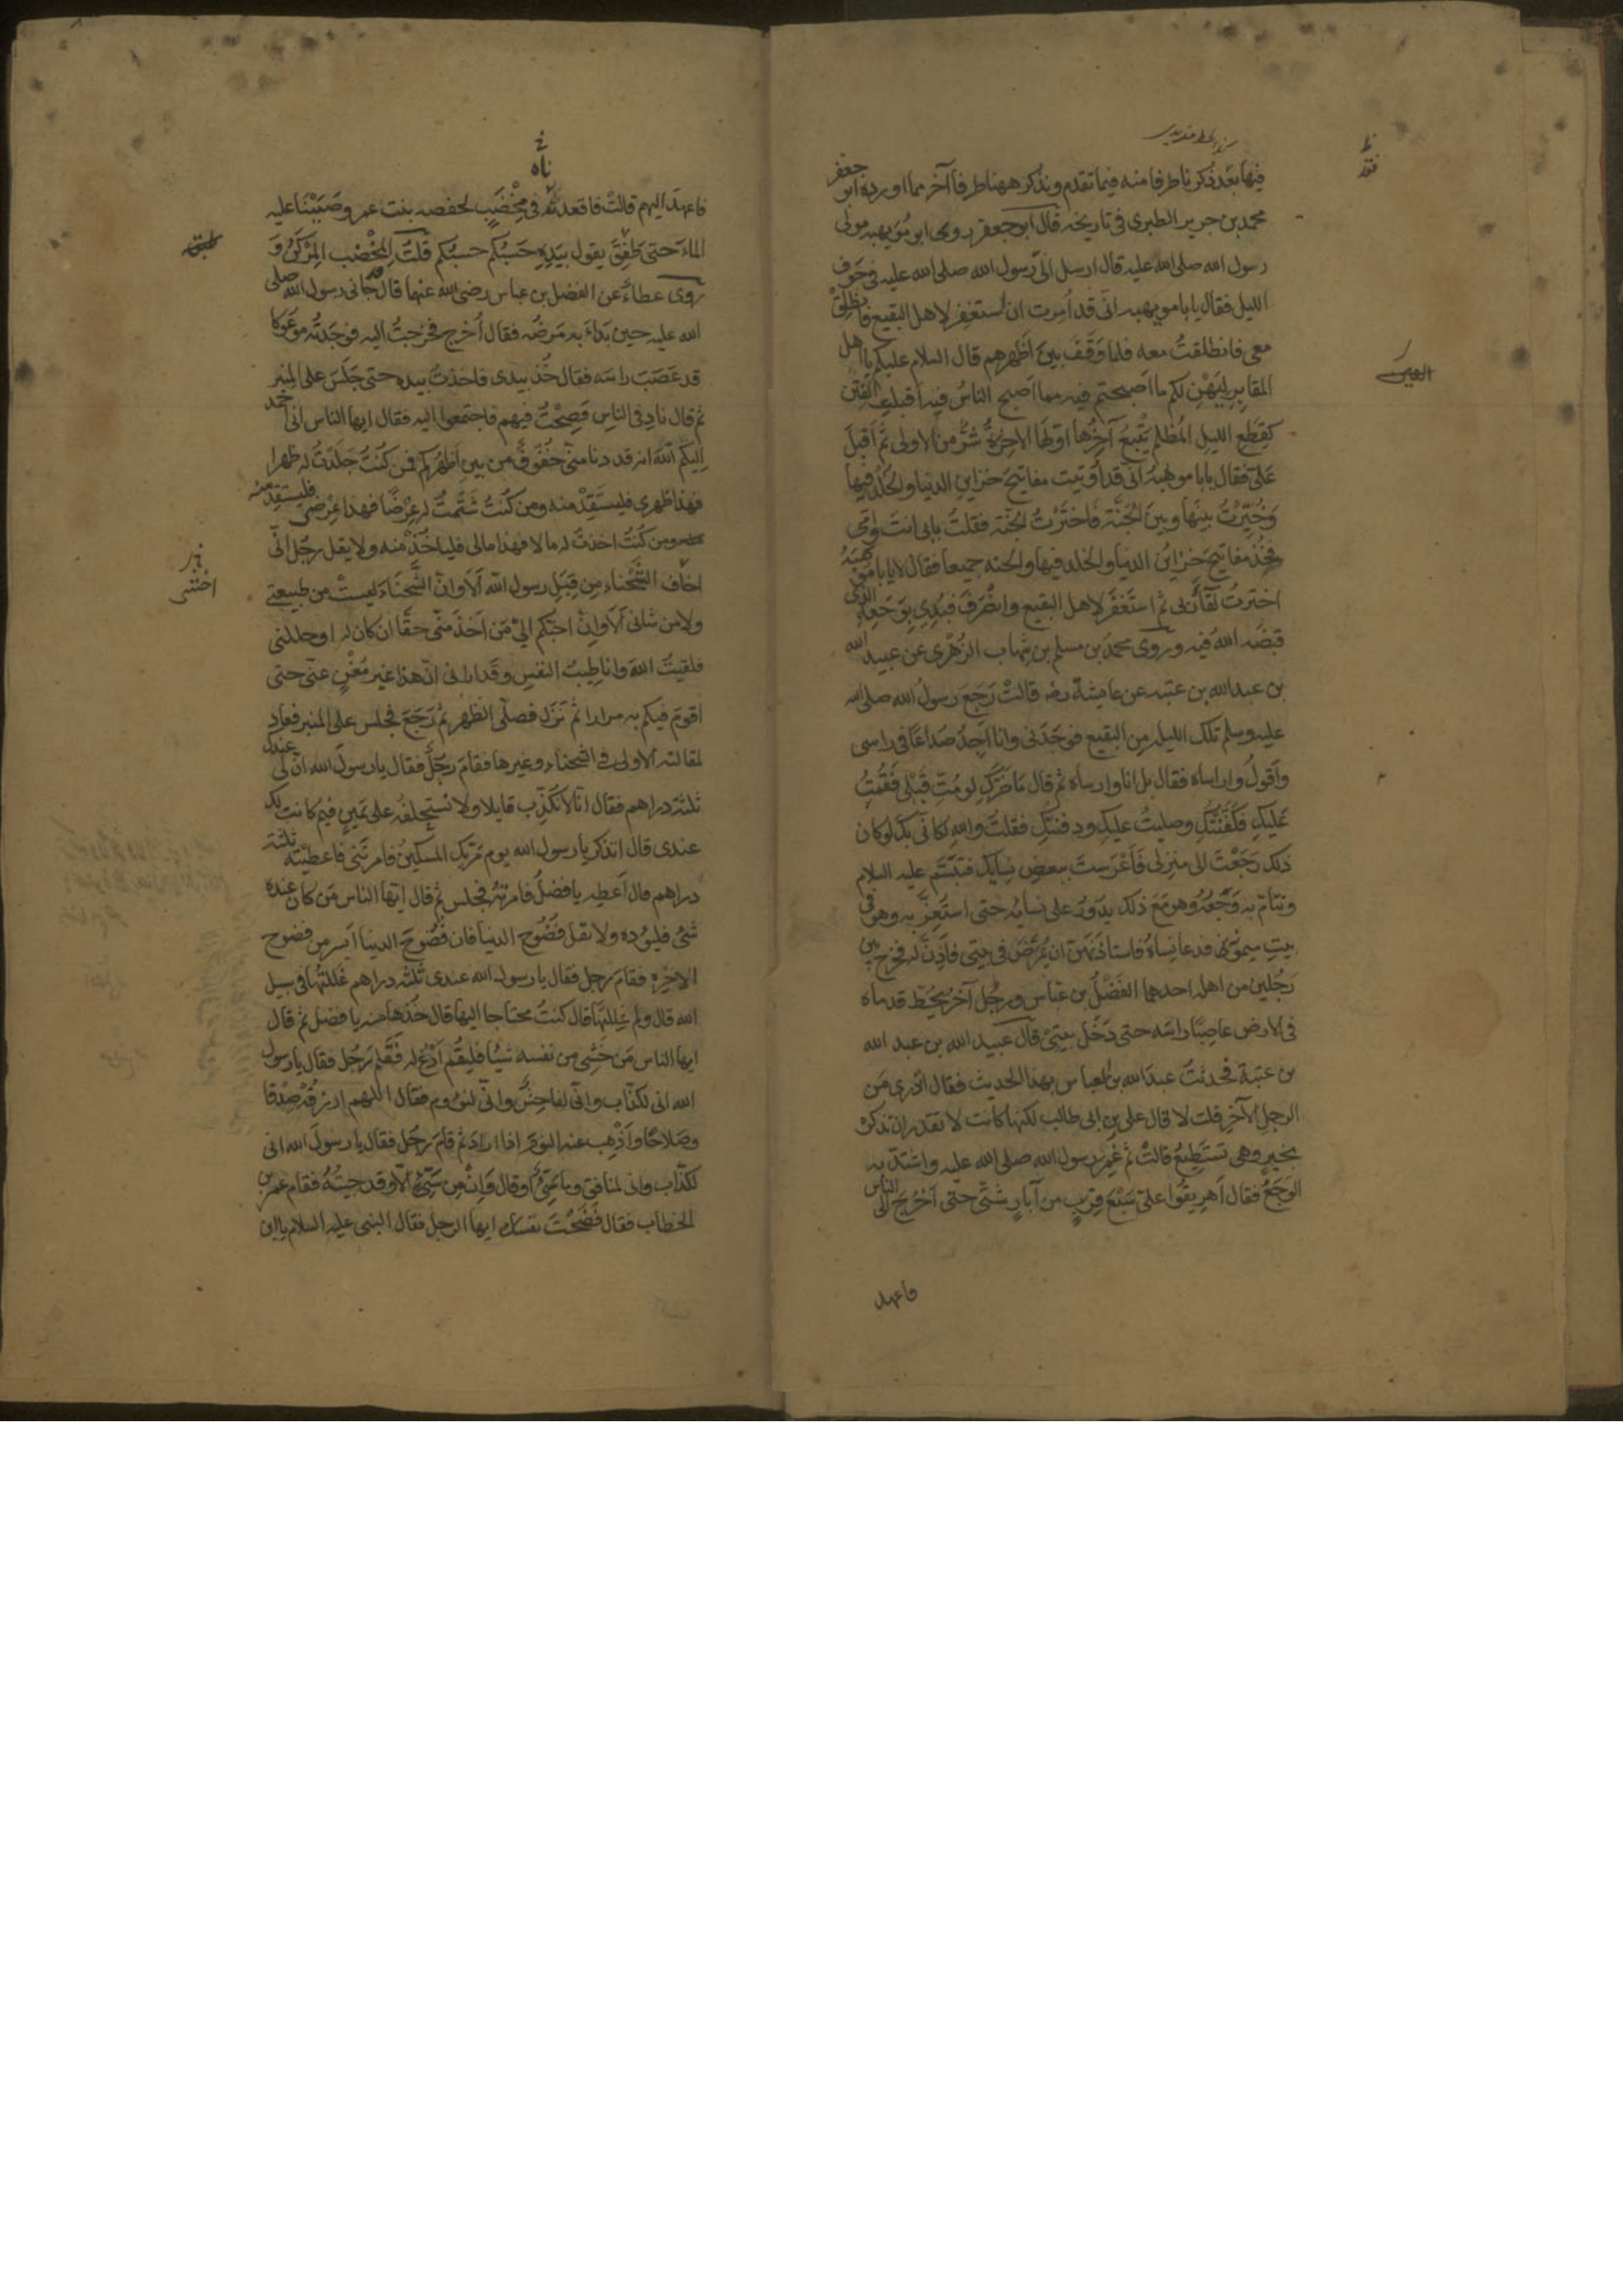 فيها بعد ذكرنا طرفا منه فيما تقدم ونذكر ههنا طرفا آخر مما اورده ابو جعفر
محمد بن جرير الطبرى فى تاريخه قال ابو جعفر روى ابو مويهبه مولى
رسول الله صلى الله عليه قال ارسل الىّ رسول الله صلى الله عليه فى جوف
الليل فقال يابا مويهبه انى قد اُمرت ان استغفر لاهل البقيع فانطلق
معى فانطلقتُ معه فلما وقف بين اظهرهم قال السلام عليكم يا اهل
المقابر لِيَهْنِ لكم ما اصبحتم فيه مما اصبح الناس فيه اقبلت الفتن
كقِطَع الليل المُظلم يتبع آخرها اوّلها الاخرة شرٌّ من الاولى ثم اقبل
علىّ فقال يابا مويهبه انى قد اُوتيت مفاتيح خزاين الدنيا والخلد فيها
وخُيّرْتُ بينها وبين الجنّة فاخترْتُ الجنّة فقلت بابى انت وامّى
فخُذ مفاتيح خزاين الدنيا والخلد فيها والجنه جميعا فقال لا يابا مويهبه
اخترت لقاء ربى ثم استغفر لاهل البقيع وانصرف فبُدِئ بوجعه الذى
قبضه الله فيه وروى محمد بن مسلم بن شهاب الزهرى عن عبيد الله
بن عبد الله بن عتبه عن عايشة رضه قالت رجع رسول الله صلى الله
عليه وسلم تلك الليله من البقيع فوجدنى وانا اجد صُداعًا فى راسى
واقول واراساه فقال بل انا واراساه ثم قال ما ضرّكِ لو مُتِّ قبلى فقمتُ
عليكِ فكفّنتُكِ وصليتُ عليكِ ودفنتكِ فقلت والله لكانّى بك لو كان
ذلك رجعتَ الى منزلى فاعرستَ ببعض نسايك فتبسّم عليه السلام
وتتامّ به وجعُه وهو مع ذلك يدور على نسايه حتى استعزّ به وهو فى
بيت ميمونة فدعا نساه فاستاذنهنّ ان يُمرَّض فى بيتى فاَذِنَّ له فخرج بين
رجُلين من اهله احدهما الفضل بن عباس ورجُل آخر تخُطّ قدماه
فى الارض عاصبًا راسه حتى دخل بيتى قال عبيد الله بن عبد الله
بن عتبة فحدثتُ عبد الله بن العباس بهذا الحديث فقال اتدرى من
الرجل الآخر قلت لا قال على بن ابى طالب لكنها كانت لا تقدر ان تذكره
بخيرٍ وهى تستطيع قالت ثم غُمِر رسول الله صلى الله عليه واشتد به
الوجع فقال اهريقوا علىّ سبع قِرَبٍ من آبارٍ شتّى حتى اخرج الى الناس
فاعهد
فاعهد اليهم قالت فاقعدناه فى مِخْضَبٍ لحفصه بنت عمر وصببْنا عليه
الماء حتى طفق يقول بيده حسبُكم حسبُكم قلتُ المِخْضب المِركَن و
روى عطاء عن الفضل بن عباس رضى الله عنهما قال جانى رسول الله صلى
الله عليه حين بداَ به مرضُه فقال اُخرج فخرجتُ اليه فوجدتُه موعوكا
قد عصب راسه فقال خذ بيدى فاخذتُ بيده حتى جلس على المنبر
ثم قال نادِ فى الناس فصِحْتُ فيهم فاجتمعوا اليه فقال ايها الناس انى احمد
اليكم الله انه قد دنا منّى حقوق من بين اظهركم فمن كنتُ جلدتُ له ظهرا
فهذا ظهرى فليستقِدْ منه ومن كنتُ شتمتُ له عِرْضًا فهذا عِرْضى فليستقد منه
ومن كنتُ اخذتُ له مالا فهذا مالى فلياخُذْ منه ولا يقل رجل انّى
اخاف الشحناء من قِبَل رسول الله اَلَا وانّ الشحناء ليستْ من طبيعتى
ولا من شانى اَلَا وانّ احبّكم الىّ من اخذ منى حقًّا ان كان له او حللنى
فلقيتُ الله وانا طيب النفس وقد ارانى انّ هذا غير مُغْنٍ عنّى حتى
اقوم فيكم به مرارا ثم نزل فصلّى الظهر ثم رجع فجلس على المنبر فعاد
لمقالته الاولى فى الشحناء وغيرها فقام رجل فقال يا رسول الله انّ لى عندك
ثلثة دراهم فقال انّا لا نكذّب قايلا ولا نستحلفُه على يمينٍ فيم كانت لك
عندى قال اتذكر يا رسول الله يوم مرّ بك المسكين فامرتنى فاعطيته ثلثة
دراهم قال اعطِه يا فضل فامرتُه فجلس ثم قال ايها الناس من كان عنده
شىٌ فليوده ولا يقل فضوح الدنيا فان فضوح الدنيا ايسر من فضوح
الاخره فقام رجل فقال يا رسول الله عندى ثلثة دراهم غللتُها فى سبيل
الله قال ولم غللتها قال كنتُ محتاجا اليها قال خُذها منه يا فضل ثم قال
ايها الناس من خشى من نفسه شيًا فليقُم ادْعُ له فقام رجُل فقال يا رسول
الله انى لكذّاب وانّى لفاحش وانّى لنؤوم فقال اللهم ارزقْه صِدْقا
وصلاحًا واَذْهِب عنه النوم اذا اراد ثم قام رجل فقال يا رسول الله انى
لكذّاب وانى لمنافق وما شىٌ او قال وان من شىٌ الّا وقد جيتُه فقام عمر بن
الخطاب فقال فضحتَ نفسك ايها الرجل فقال النبى عليه السلام يا ابن